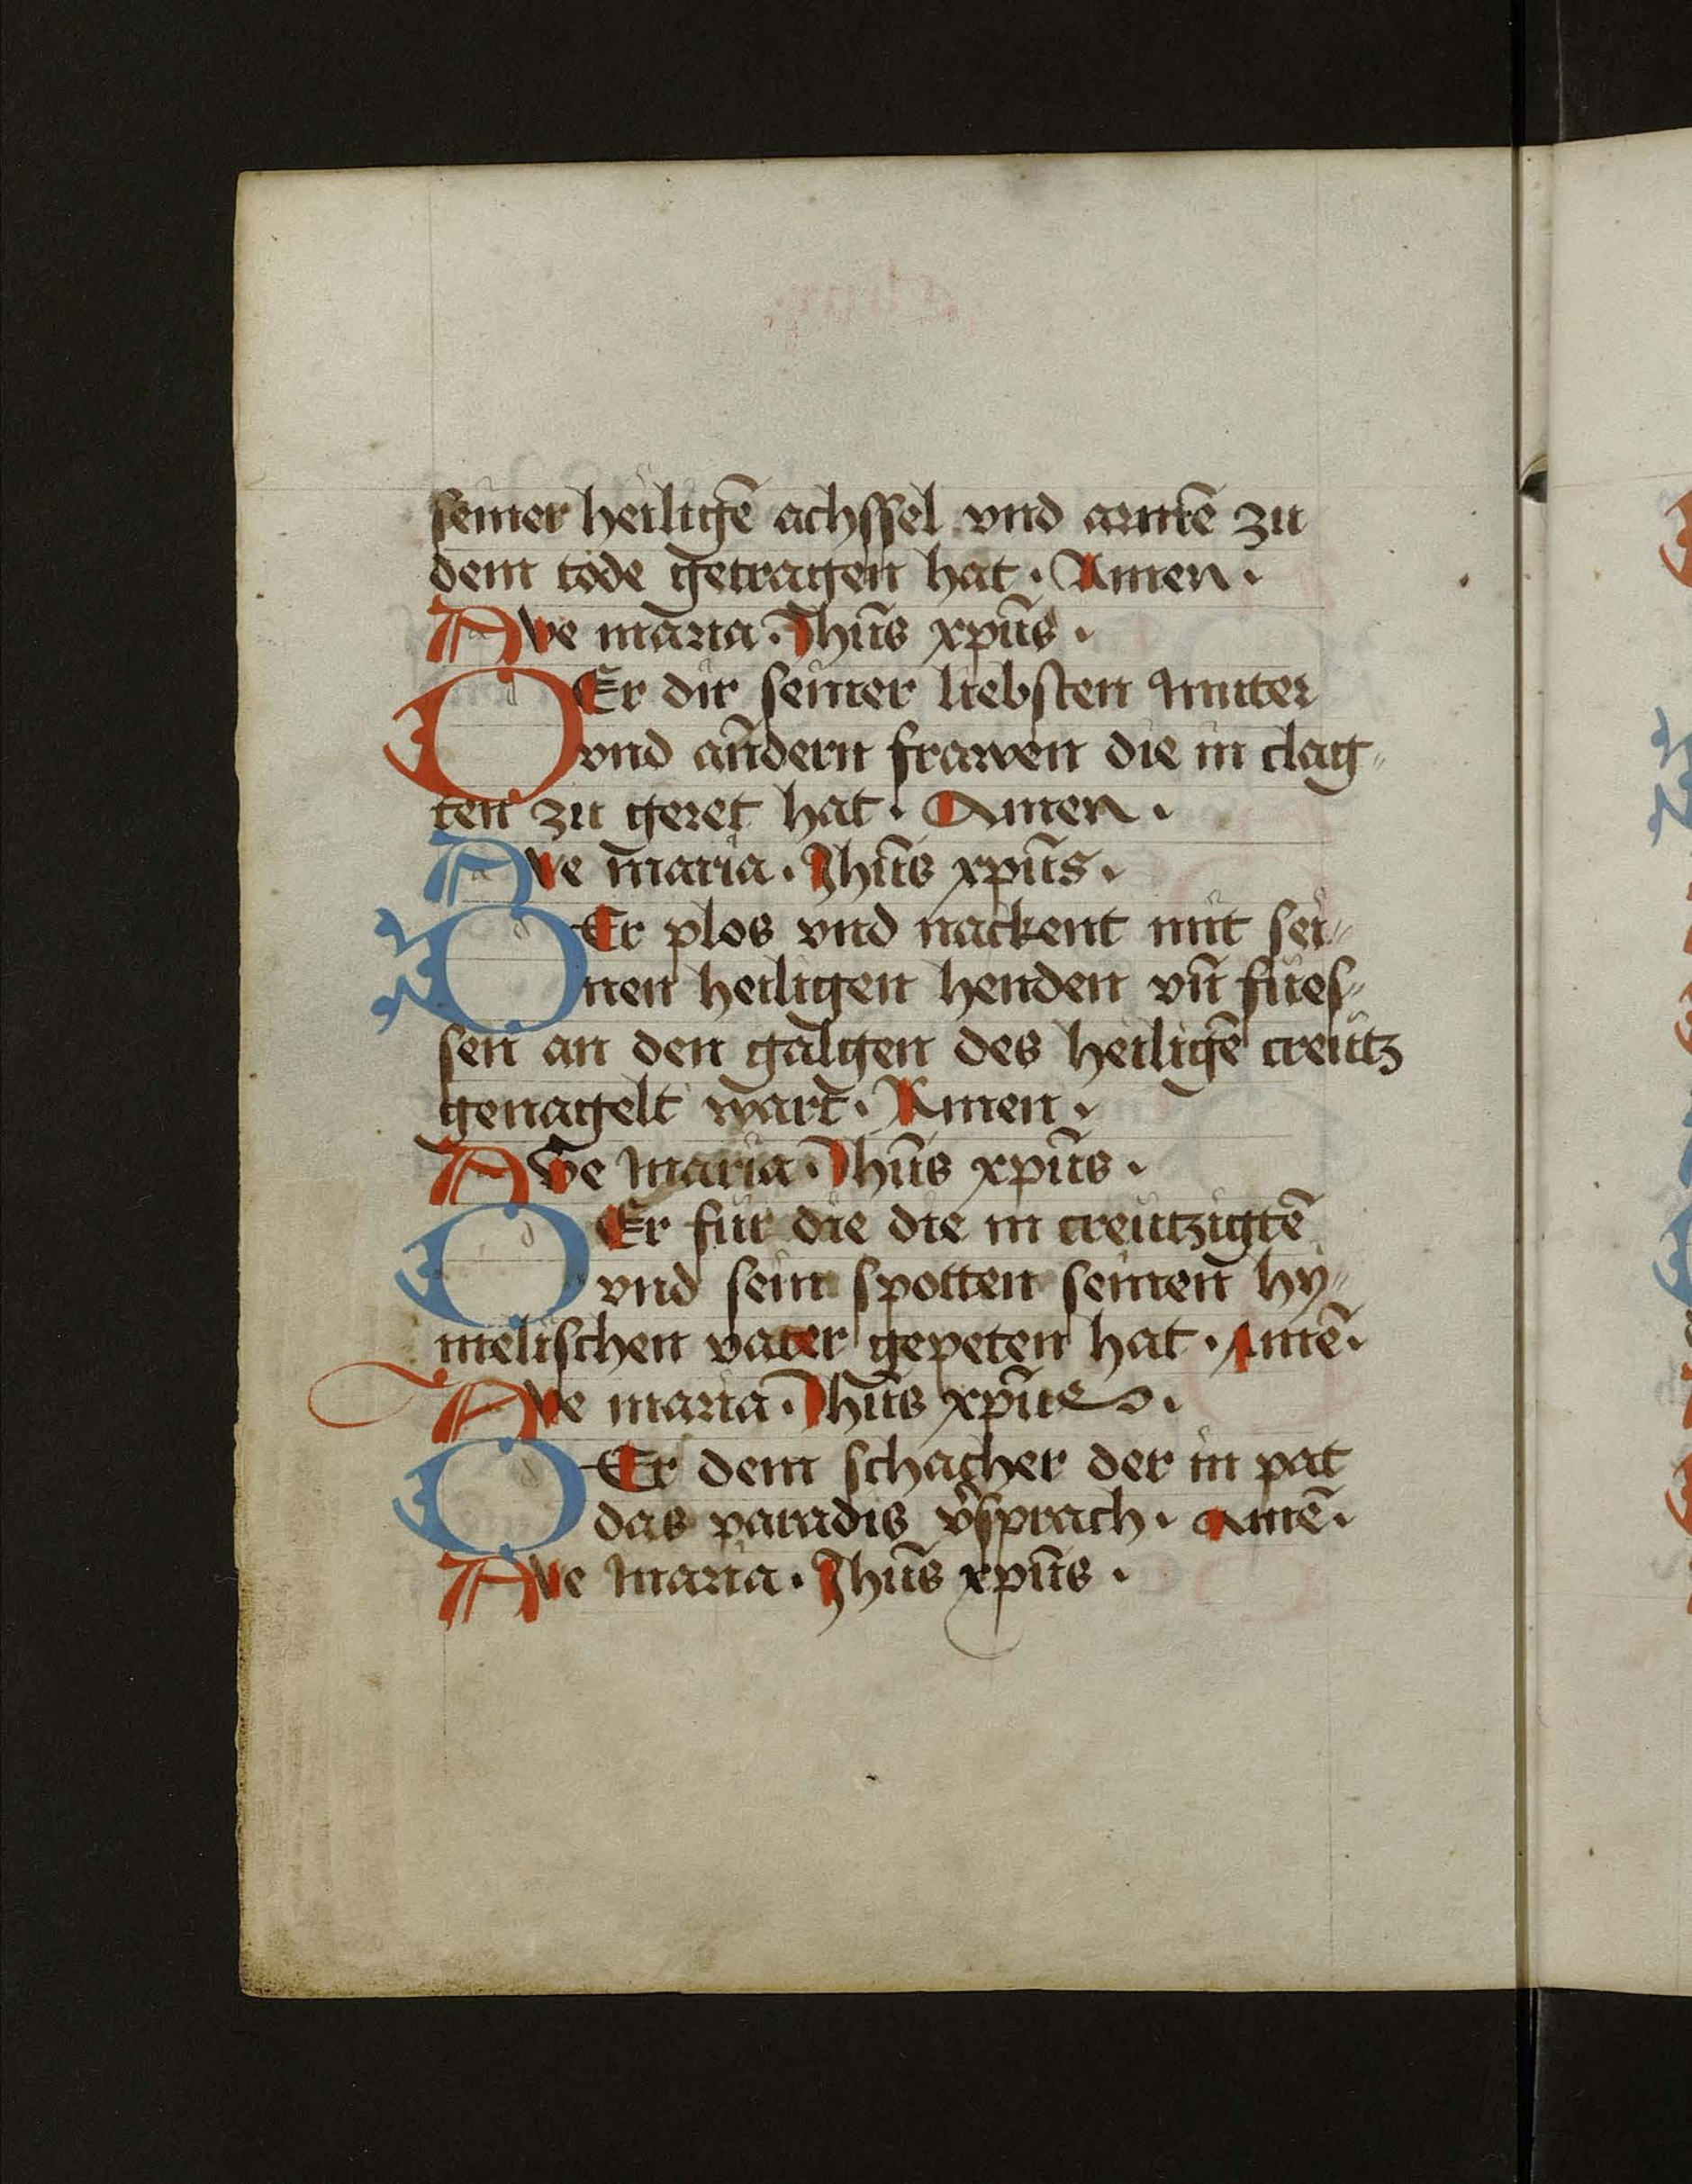 seiner heiligē achssel vnd armē zu
dem tode getragen hat · Amen ·
Awe maria · Jhūs xpūs ·
DEr dir seiner liebsten muter
vnd andern frawen die in clag⸗
ten zu geret hat · Amen ·
Awe maria · Jhūs xpūs ·
DEr plos vnd nackent mit sei⸗
nen heiligen henden vn̄ fues⸗
sen an den galgen des heiligē creutz
genagelt wart · Amen ·
Awe maria · Jhūs xpūs ·
DEr fur die die in creutzigtē
vnd sein spotten seinen hy⸗
melischen vater gepeten hat · Amē ·
Awe maria · Jhūs xpūs ·
DEr dem schacher der in pat
das paradis v̾sprach · Amē ·
Awe maria · Jhūs xpūs ·